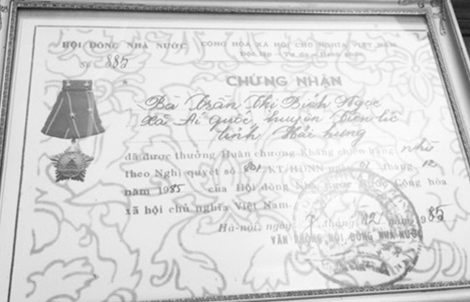 HỘI ĐỒNG NHÀ NƯỚC
CỘNG HÒA XÃ HỘI CHỦ NGHĨA VIỆT NAM
Số 885
CHỨNG NHẬN
Bà Trần Thị Bích Ngọc
Xã Ái Quốc, huyện
tỉnh Hải Hưng
đã được thưởng Huân chương Kháng chiến hạng nhì
theo Nghị quyết số KT/HĐNN ngày 01 tháng 12
năm 1985 của Hội đồng Nhà nước Nước Cộng hòa
xã hội chủ nghĩa Việt Nam
Hà-nội, ngày 7 tháng 12 năm 1985
VĂN PHÒNG HỘI ĐỒNG NHÀ NƯỚC